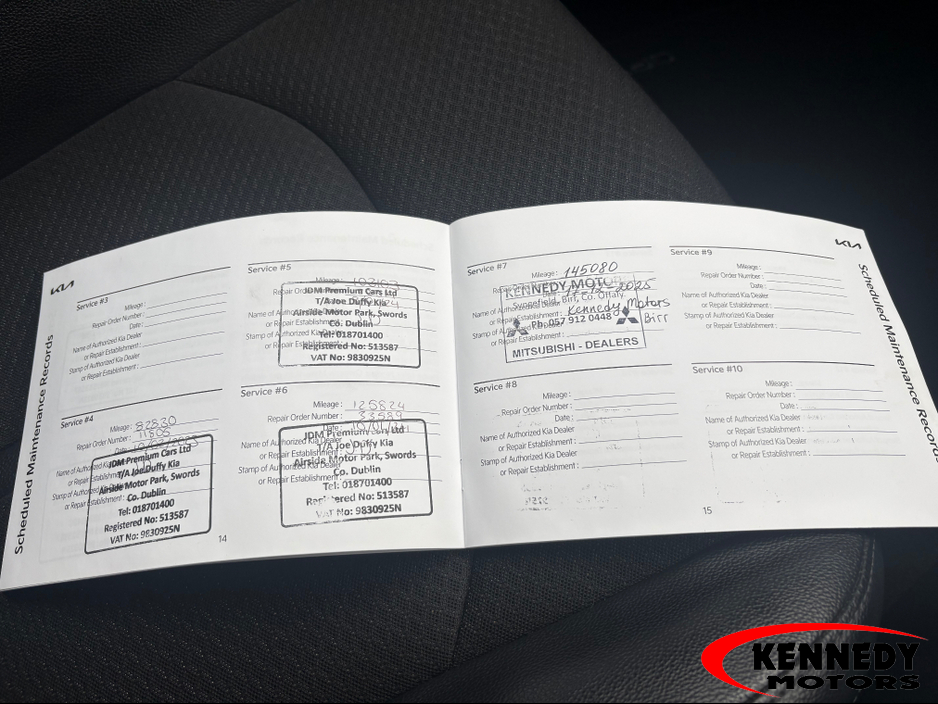 KIA
Scheduled Maintenance Records
Service #3
Mileage :
Repair Order Number :
Date :
Name of Authorized Kia Dealer
or Repair Establishment :
Stamp of Authorized Kia Dealer
or Repair Establishment :
Service #4
Mileage : 82830
Repair Order Number :
Date :
Name of Authorized Kia
or Repair Establishment
Stamp of Authorized
or Repair
JDM Premium Cars Ltd
T/A Joe Duffy Kia
Airside Motor Park, Swords
Co. Dublin
Tel: 018701400
Registered No: 513587
VAT No: 9830925N
Service #5
Mileage :
Repair Order
Name of Authorized
or Repair
Stamp of Authorized
or Repair Establishment
JDM Premium Cars Ltd
T/A Joe Duffy Kia
Airside Motor Park, Swords
Co. Dublin
Tel: 018701400
Registered No: 513587
VAT No: 9830925N
Service #6
Mileage : 125824
Repair Order Number : 33589
Date : 10/01/
Name of Authorized Kia Dealer
or Repair Establishment :
Stamp of Authorized Kia Dealer
or Repair Establishment
JDM Premium Cars Ltd
T/A Joe Duffy Kia
Airside Motor Park, Swords
Co. Dublin
Tel: 018701400
Registered No: 513587
VAT No: 9830925N
14
Service #7
Mileage : 145080
Repair Order
-12-2025
Name of Authorized
or Repair Establishment : Kennedy Motors
Stamp of Authorized
Birr
or Repair Establishment :
KENNEDY MOTO
Birr, Co. Offaly
Ph: 057 912 0448
MITSUBISHI - DEALERS
Service #8
Repair Order Number :
Date :
Name of Authorized Kia Dealer
or Repair Establishment :
Stamp of Authorized Kia Dealer
or Repair Establishment :
Service #9
Mileage :
Repair Order Number :
Date :
Name of Authorized Kia Dealer
or Repair Establishment :
Stamp of Authorized Kia Dealer
or Repair Establishment :
Service #10
Mileage :
Repair Order Number :
Date :
Name of Authorized Kia Dealer
or Repair Establishment :
Stamp of Authorized Kia Dealer
or Repair Establishment :
15
KIA
Scheduled Maintenance Records
KENNEDY
MOTORS